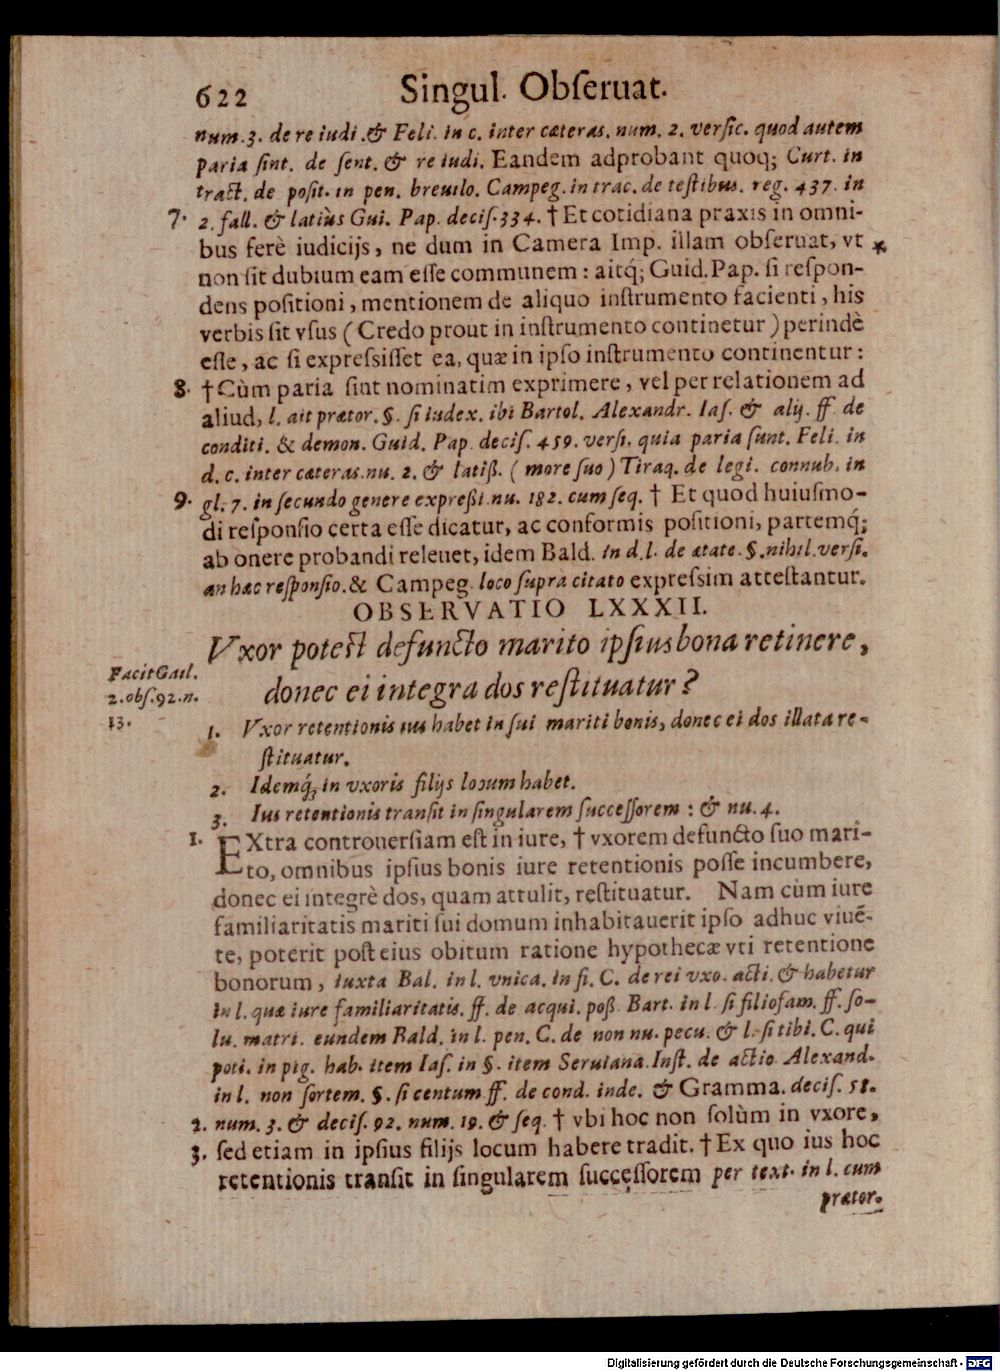 622 Singul. Obſeruat.
num. 3. de re iudi. & Feli. in c. inter cæteras. num. 2. verſic. quod autem
paria ſint. de ſent. & re iudi. Eandem adprobant quoq; Curt. in
tract. de poſit. in pen. breuilo. Campeg. in trac. de teſtibus. reg. 437. in
7. 2. fall. & latiùs Gui. Pap. deciſ. 334. † Et cotidiana praxis in omni-
bus ferè iudicijs, ne dum in Camera Imp. illam obſeruat, vt *
non ſit dubium eam eſſe communem: aitq́; Guid. Pap. ſi reſpon-
dens poſitioni, mentionem de aliquo inſtrumento facienti, his
verbis ſit vſus (Credo prout in inſtrumento continetur) perindè
eſſe, ac ſi expreſsiſſet ea, quæ in ipſo inſtrumento continentur:
8. † Cùm paria ſint nominatim exprimere, vel per relationem ad
aliud, l. ait prætor. §. ſi iudex. ibi Bartol. Alexandr. Iaſ. & alij. ff. de
conditi. & demon. Guid. Pap. deciſ. 459. verſi. quia paria ſunt. Feli. in
d. c. inter cæteras. nu. 2. & latiß. (more ſuo) Tiraq. de legi. connub. in
9. gl. 7. in ſecundo genere expreßi. nu. 182. cum ſeq. † Et quod huiuſmo-
di reſponſio certa eſſe dicatur, ac conformis poſitioni, partemq́;
ab onere probandi releuet, idem Bald. in d. l. de ætate. §. nihil. verſi.
an hæc reſponſio. & Campeg. loco ſuprà citato expreſsim atteſtantur.
OBSERVATIO LXXXII.
Vxor poteſt defuncto marito ipſius bona retinere,
donec ei integra dos reſtituatur?
Facit Gail.
2. obſ. 92. n.
13.
1. Vxor retentionis ius habet in ſui mariti bonis, donec ei dos illata re-
ſtituatur.
2. Idemq́; in vxoris filijs locum habet.
3. Ius retentionis tranſit in ſingularem ſucceſſorem: & nu. 4.
1. EXtra controuerſiam eſt in iure, † vxorem defuncto ſuo mari-
to, omnibus ipſius bonis iure retentionis poſſe incumbere,
donec ei integrè dos, quam attulit, reſtituatur. Nam cùm iure
familiaritatis mariti ſui domum inhabitauerit ipſo adhuc viuē-
te, poterit poſt eius obitum ratione hypothecæ vti retentione
bonorum, iuxta Bal. in l. vnica. in fi. C. de rei vxo. acti. & habetur
in l. quæ iure familiaritatis. ff. de acqui. poß. Bart. in l. ſi filiofam. ff. ſo-
lu. matri. eundem Bald. in l. pen. C. de non nu. pecu. & l. ſi tibi. C. qui
poti. in pig. hab. item Iaſ. in §. item Seruiana. Inſt. de actio. Alexand.
in l. non ſortem. §. ſi centum ff. de cond. inde. & Gramma. deciſ. 58.
2. num. 3. & deciſ. 92. num. 19. & ſeq. † vbi hoc non ſolùm in vxore,
3. ſed etiam in ipſius filijs locum habere tradit. † Ex quo ius hoc
retentionis tranſit in ſingularem ſucceſſorem per text. in l. cum
prætor.
Digitalisierung gefördert durch die Deutsche Forschungsgemeinschaft - DFG